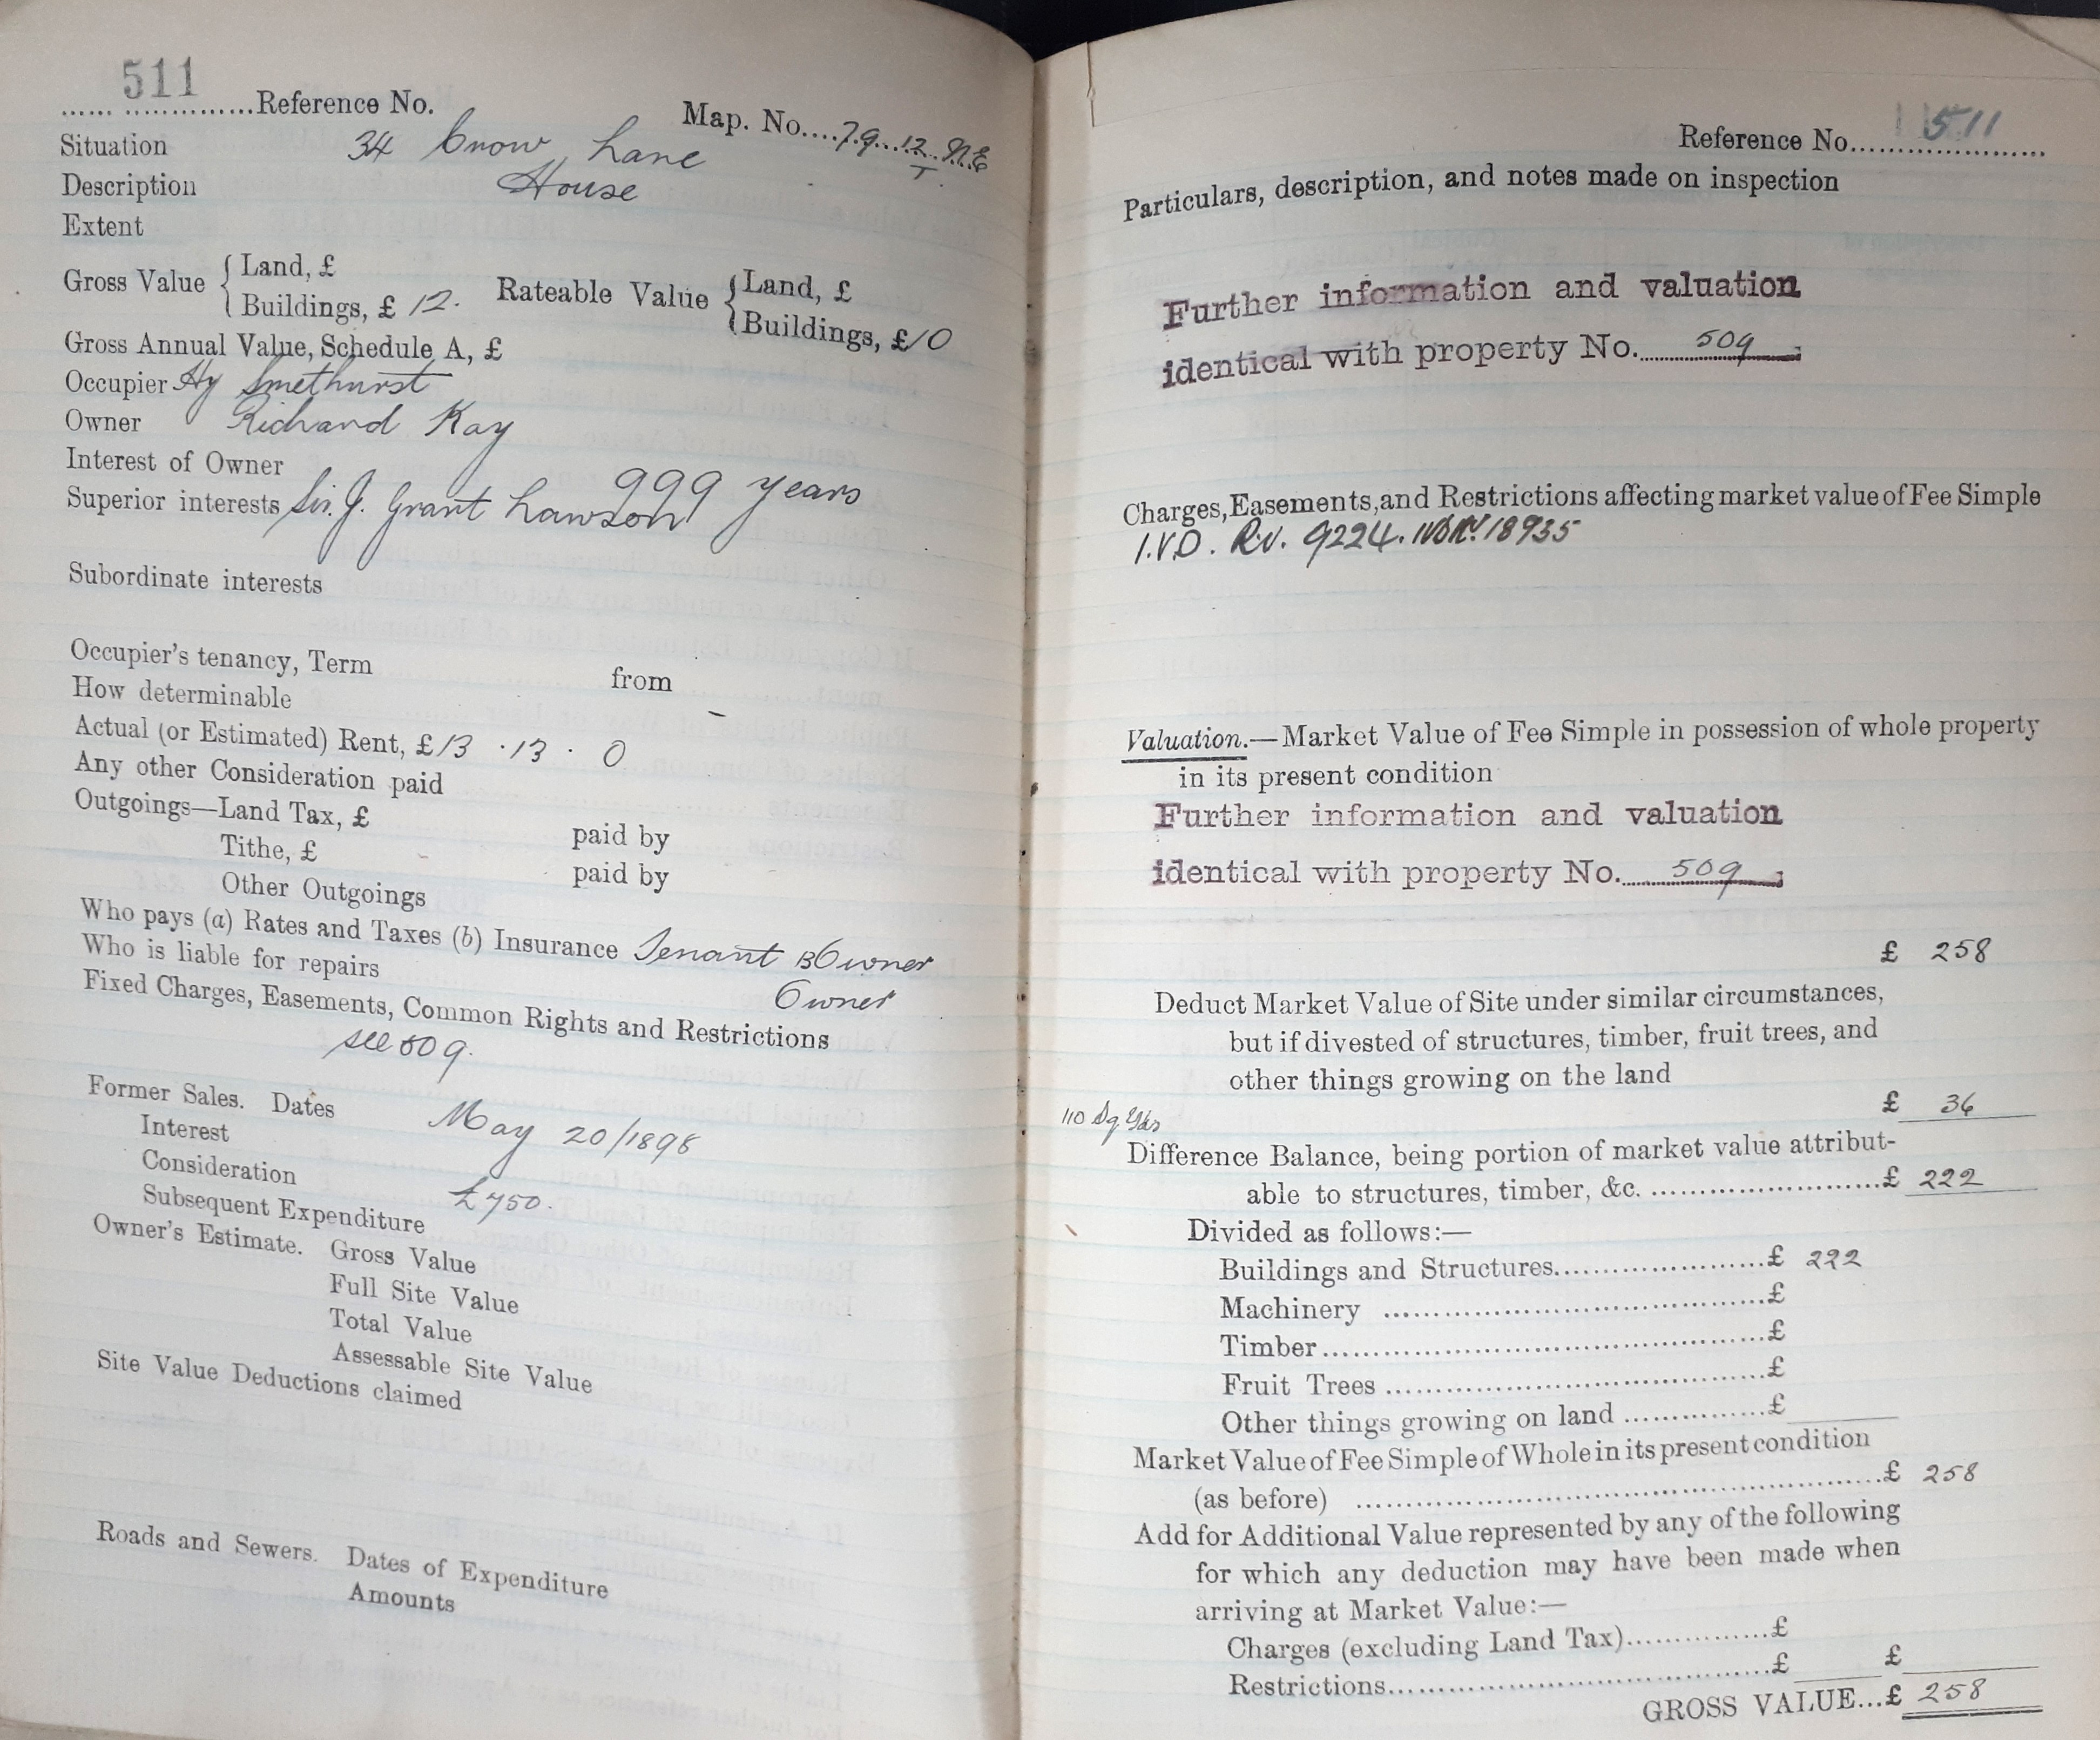 511
Reference No. Map. No. 79.12.N.E
T
Situation 34 Crow Lane
Description House
Extent
Gross Value { Land, £
Buildings, £ 12. Rateable Value { Land, £
Buildings, £10
Gross Annual Value, Schedule A, £
Occupier Hy Smethurst
Owner Richard Kay
Interest of Owner 999 years
Superior interests Sir. J. Grant Lawson
Subordinate interests
Occupier's tenancy, Term from
How determinable
Actual (or Estimated) Rent, £13 . 13 . 0
Any other Consideration paid
Outgoings—Land Tax, £ paid by
Tithe, £ paid by
Other Outgoings
Who pays (a) Rates and Taxes (b) Insurance Tenant B Owner
Who is liable for repairs Owner
Fixed Charges, Easements, Common Rights and Restrictions
see 509.
Former Sales. Dates May 20/1898
Interest
Consideration £750.
Subsequent Expenditure
Owner's Estimate. Gross Value
Full Site Value
Total Value
Assessable Site Value
Site Value Deductions claimed
Roads and Sewers. Dates of Expenditure
Amounts
Reference No. 511
Particulars, description, and notes made on inspection
Further information and valuation
identical with property No. 509
Charges, Easements, and Restrictions affecting market value of Fee Simple
I.V.D. Rv. 9224. 18935
Valuation.—Market Value of Fee Simple in possession of whole property
in its present condition
Further information and valuation
identical with property No. 509
£ 258
Deduct Market Value of Site under similar circumstances,
but if divested of structures, timber, fruit trees, and
other things growing on the land
110 Sq Yds £ 36
Difference Balance, being portion of market value attribut-
able to structures, timber, &c. £ 222
Divided as follows:—
Buildings and Structures £ 222
Machinery £
Timber £
Fruit Trees £
Other things growing on land £
Market Value of Fee Simple of Whole in its present condition
(as before) £ 258
Add for Additional Value represented by any of the following
for which any deduction may have been made when
arriving at Market Value:—
Charges (excluding Land Tax) £
Restrictions £ £
GROSS VALUE...£ 258